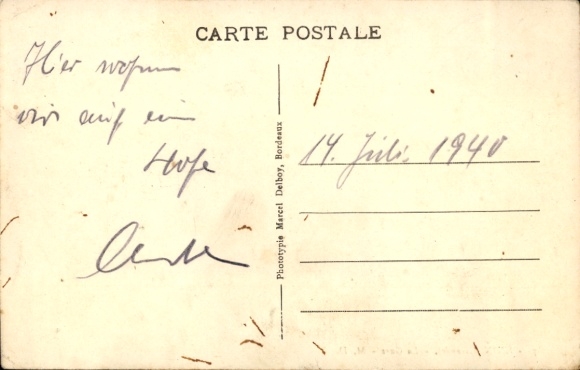 CARTE POSTALE
Hier wohnen
wir auf ein
Hofe
14. Juli 1940
Phototypie Marcel Delboy, Bordeaux